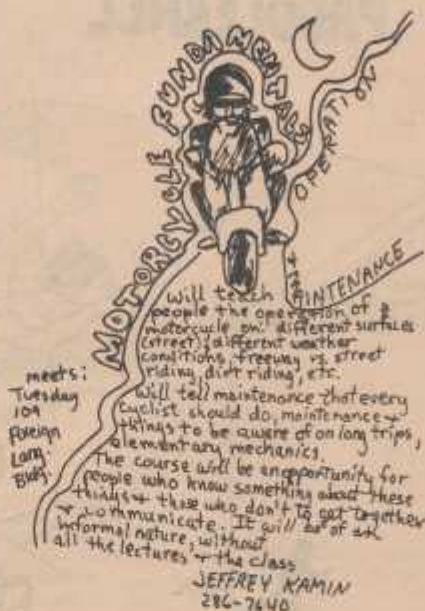 MOTORCYCLE FUNDAMENTALS
OPERATION
MAINTENANCE
will teach
people the operation of a
motorcycle on: different surfaces
(street); different weather
conditions, freeway vs. street
riding, dirt riding, etc.
Will tell maintenance that every
cyclist should do, maintenance +
things to be aware of on long trips,
elementary mechanics.
The course will be an opportunity for
people who know something about these
things + those who don't to get together
+ communicate. It will be of an
informal nature, without
all the lectures + the class
JEFFREY KAMIN
286-7640
meets:
Tuesday
109
Foreign
Lang.
Bldg.